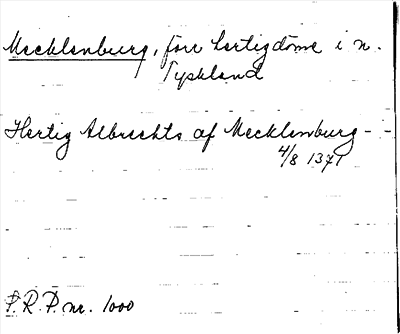 Mecklenburg, förr hertigdöme i n.
Tyskland
Hertig Albrechts af Mecklenburg -
4/8 1371
P.R.P. nr. 1000